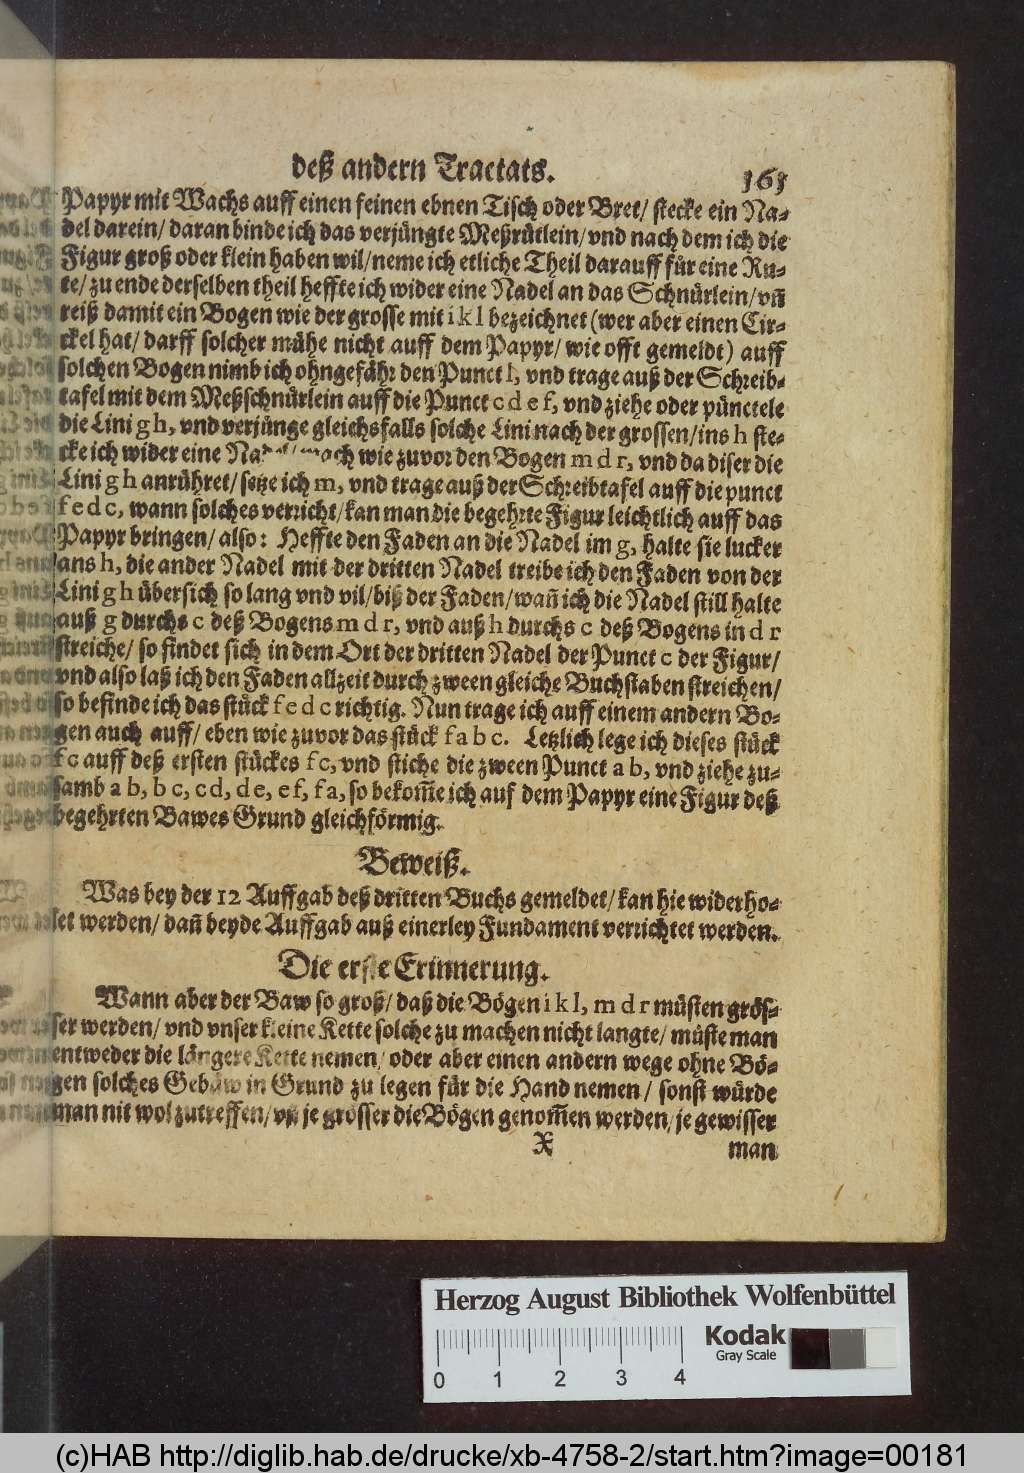 deß andern Tractats.
161
Papyr mit Wachs auff einen feinen ebnen Tisch oder Bret/ stecke ein Na-
del darein/ daran binde ich das verjüngte Meßrütlein/ vnd nach dem ich die
Figur groß oder klein haben wil/ neme ich etliche Theil darauff für eine Ru-
te/ zu ende derselben theil heffte ich wider eine Nadel an das Schnürlein/ vñ
reiß damit ein Bogen wie der grosse mit i k l bezeichnet (wer aber einen Cir-
ckel hat/ darff solcher mühe nicht auff dem Papyr/ wie offt gemeldt) auff
solchen Bogen nimb ich ohngefähr den Punct l, vnd trage auß der Schreib-
tafel mit dem Meßschnürlein auff die Punct c d e f, vnd ziehe oder pünctele
die Lini g h, vnd verjünge gleichsfalls solche Lini nach der grossen/ ins h ste-
cke ich wider eine Nadel/ mach wie zuvor den Bogen m d r, vnd da diser die
Lini g h anrühret/ setze ich m, vnd trage auß der Schreibtafel auff die punct
f e d c, wann solches verricht/ kan man die begehrte Figur leichtlich auff das
Papyr bringen/ also: Heffte den Faden an die Nadel im g, halte sie lucker
ans h, die ander Nadel mit der dritten Nadel treibe ich den Faden von der
Lini g h übersich so lang vnd vil/ biß der Faden/ wañ ich die Nadel still halte
auß g durchs c deß Bogens m d r, vnd auß h durchs c deß Bogens in d r
streiche/ so findet sich in dem Ort der dritten Nadel der Punct c der Figur/
vnd also laß ich den Faden allzeit durch zween gleiche Buchstaben streichen/
so befinde ich das stück f e d c richtig. Nun trage ich auff einem andern Bo-
gen auch auff/ eben wie zuvor das stück f a b c. Letzlich lege ich dieses stück
f c auff deß ersten stückes f c, vnd stiche die zween Punct a b, vnd ziehe zu-
samb a b, b c, c d, d e, e f, f a, so bekom̃e ich auf dem Papyr eine Figur deß
begehrten Bawes Grund gleichförmig.
Beweiß.
Was bey der 12 Auffgab deß dritten Buchs gemeldet/ kan hie widerho-
let werden/ dañ beyde Auffgab auß einerley Fundament verrichtet werden.
Die erste Erinnerung.
Wann aber der Baw so groß/ daß die Bögen i k l, m d r müsten grös-
ser werden/ vnd vnser kleine Kette solche zu machen nicht langte/ müste man
entweder die längere Kette nemen/ oder aber einen andern wege ohne Bö-
gen solches Gebäw in Grund zu legen für die Hand nemen/ sonst würde
man nit wol zutreffen/ vñ je grösser die Bögen genom̃en werden/ je gewisser
X
man
Herzog August Bibliothek Wolfenbüttel
Kodak
Gray Scale
0 1 2 3 4
(c)HAB http://diglib.hab.de/drucke/xb-4758-2/start.htm?image=00181